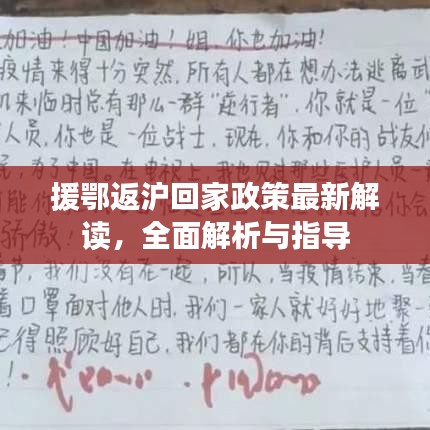 加油！中国加油！姐，你也加油！
疫情来得十分突然，所有人都在想办法逃离武
机来临时总有那么一群“逆行者”，你就是一位
人员，你也是一位战士，现在，你和你的战友们
援鄂返沪回家政策最新解
读，全面解析与指导
骄傲！
春节，我们没有在一起，所以，当疫情结束，当春
着口罩面对他人时，我们一家人就好好地聚一
记得照顾好自己，我们都在你的背后支持着你
！